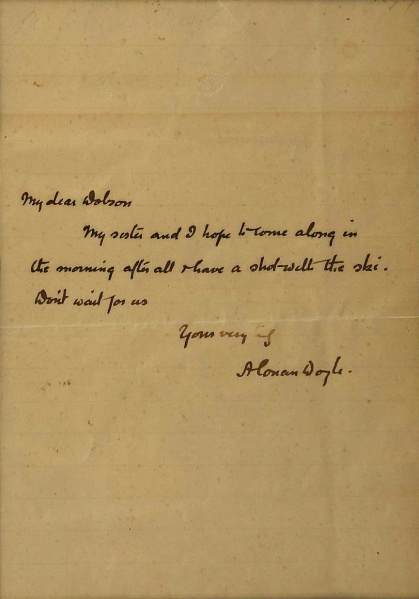 My dear Dobson
My sister and I hope to come along in
the morning after all & have a shot with the ski.
Don't wait for us
Yours very
A Conan Doyle.